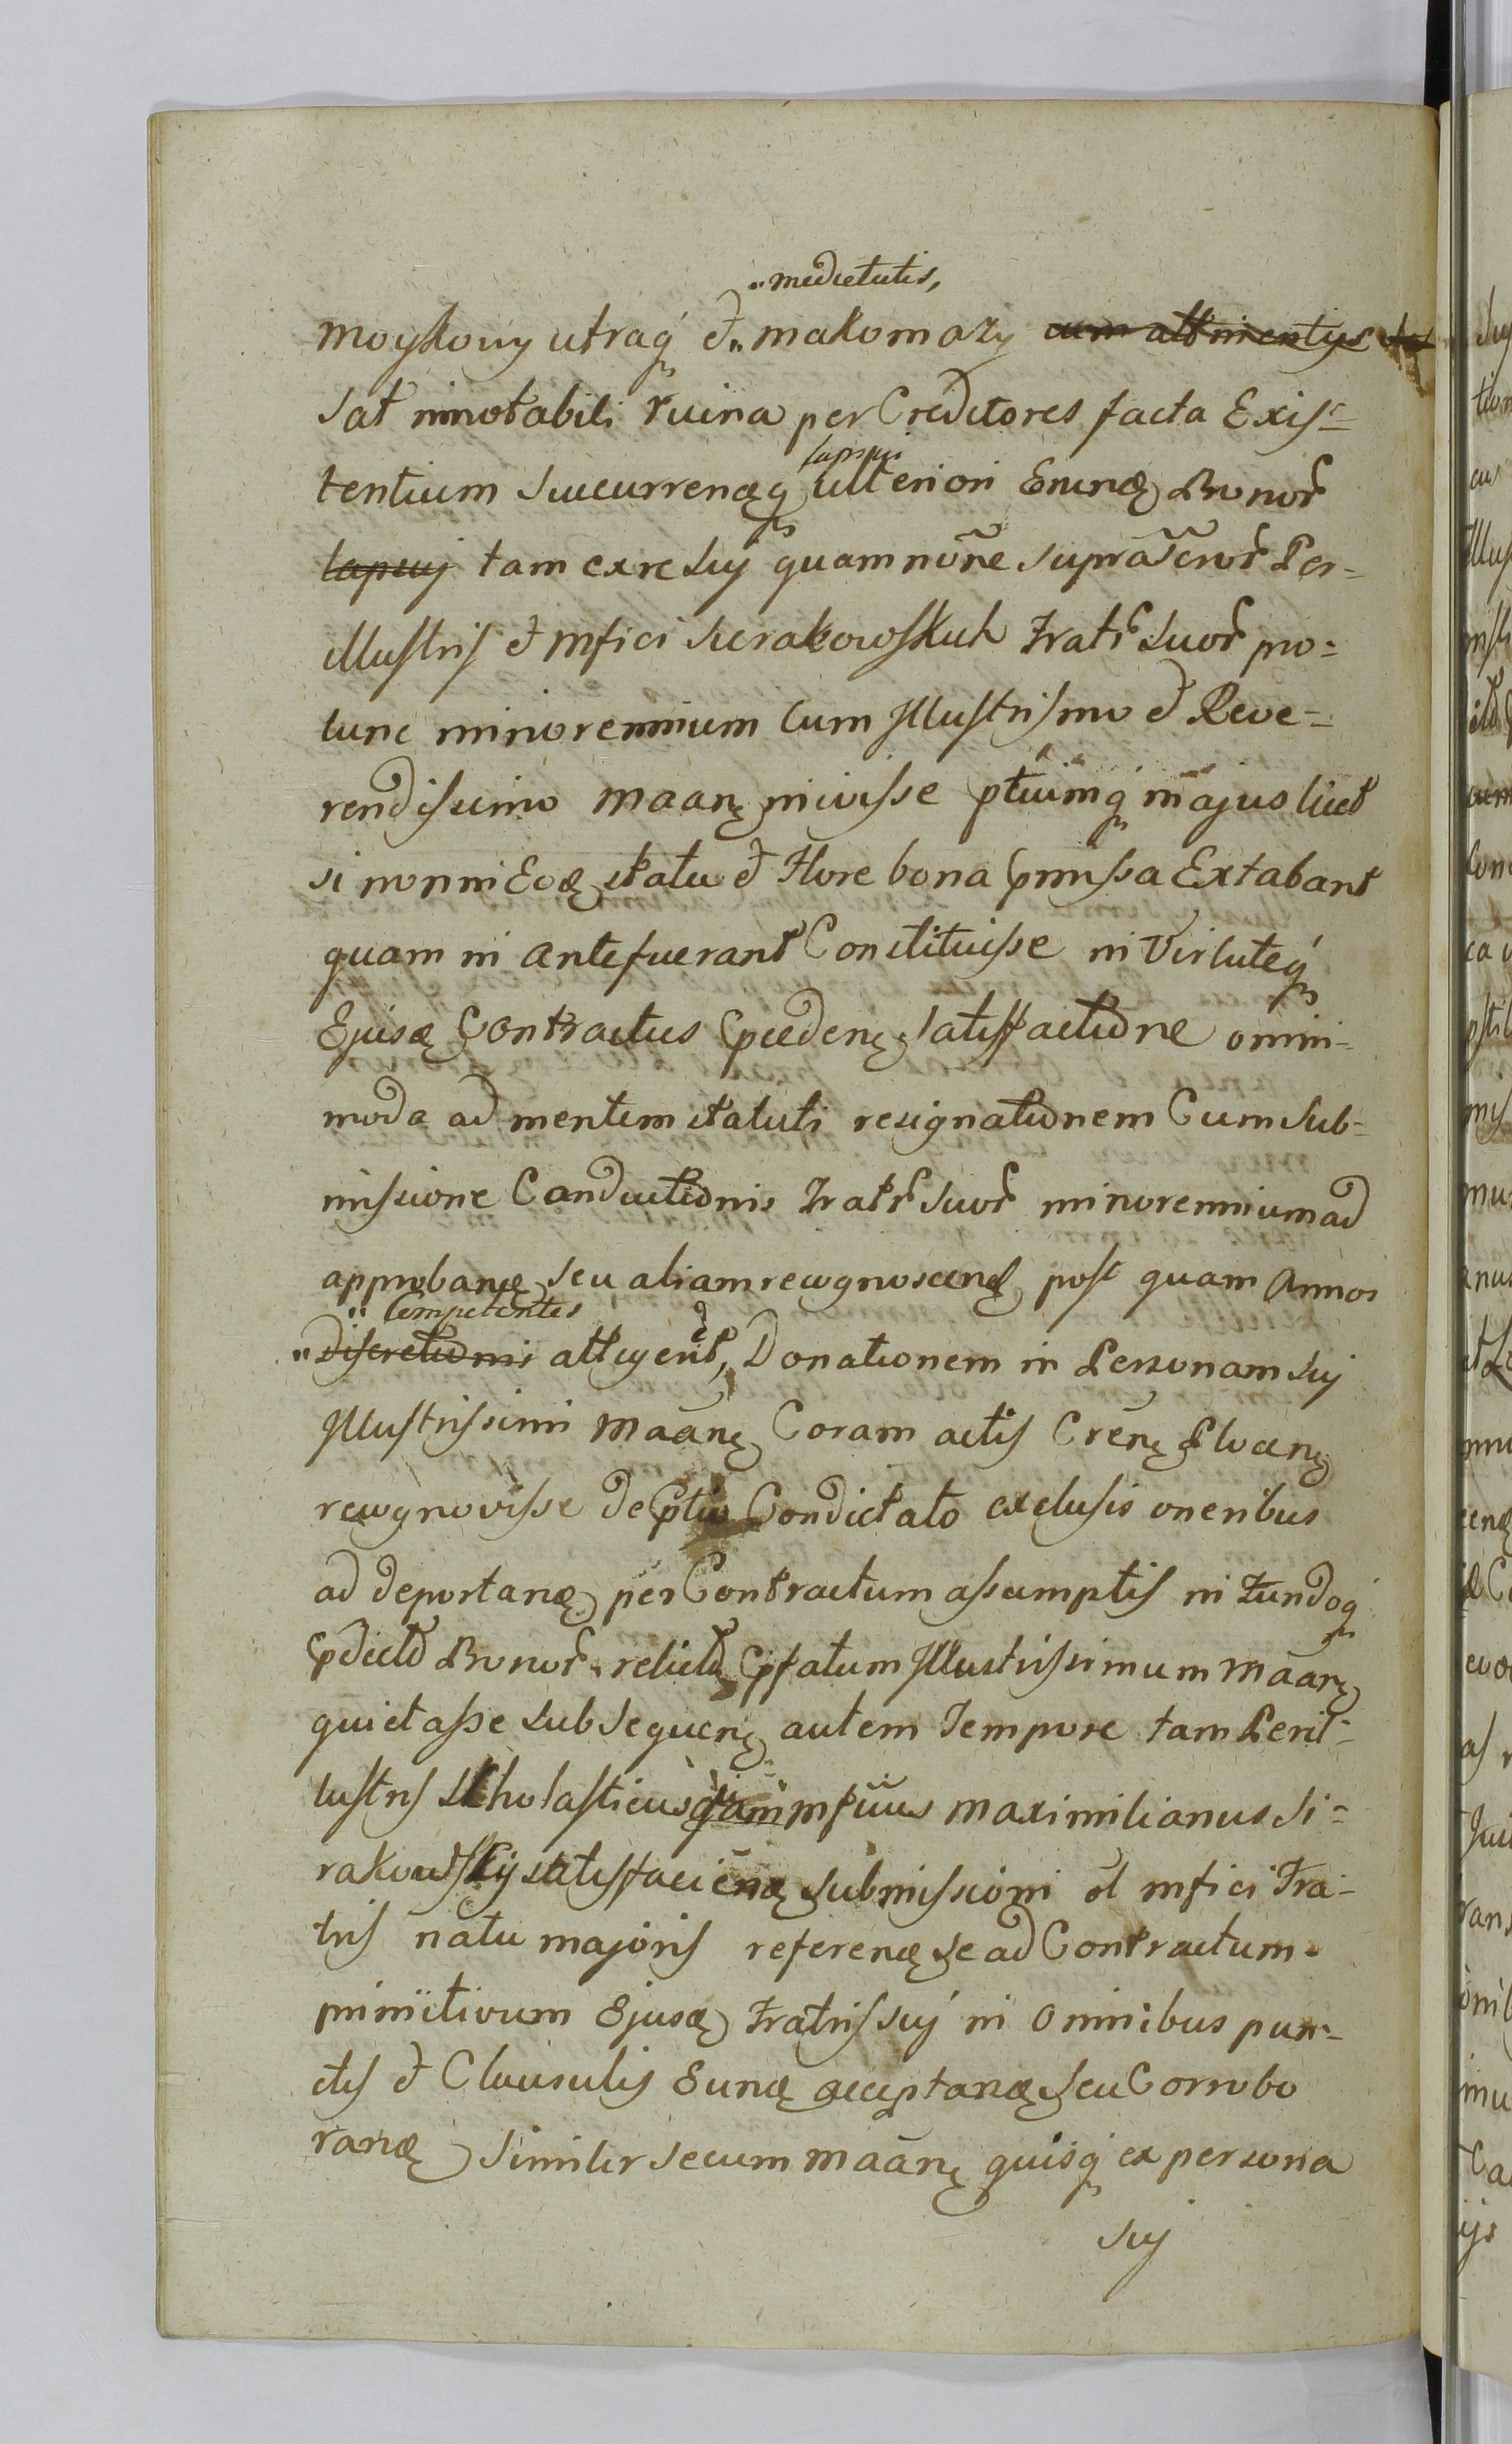 "medietatis,
Moyskowy utraq₃ et "Makomazy cum attinentijs
Sat innotabili ruina per Creditores facta Exis=
tentium Succurrendoq₃ lapsui ulteriori Eorund Bonor
lapsuj tam ex re Suj quam noñe supra Scrōr Per=
illustris et Mfici Sierakowskich Fratr Suor pro=
tunc minorennium Cum Illustrismo et Reve=
rendissimo Maan inivisse ptiumq₃ majus licet
si non in Eod statu et Flore bona pmissa Extabant
quam in antefuerant Constituisse in Virtuteq₃
Ejusd Contractus pcedeñ satisfactione omni=
moda ad mentem statuti resignationem Cum Sub=
missione Conductionis Fratr Suor minorennium ad
approband seu aliam recognoscend post quam Annos
" Competentes
"Discretionis attigerit, Donationem in Personam Suj
Illustrissimi Maañ Coram actis Creñ Ploceñ
recognovisse de ptio Condictato exclusis oneribus
ad deportand per Contractum assumptis in Fundoq₃
pdicto Bonor relict pfatum Illustrissimum Maañ
quietasse subsequeñ autem Tempore tam Peril=
lustris Scholasticus quam Mficus Maximilianus Si=
rakowskij satisfaciend submissioni ol Mfici Fra=
tris natu majoris referend se ad Contractum
primitivum Ejusd Fratris suj in omnibus pun=
ctis et Clausulis Eund acceptand seu Corrobo
rand Similiter secum Maañ quisq₃ ex persona
Suj